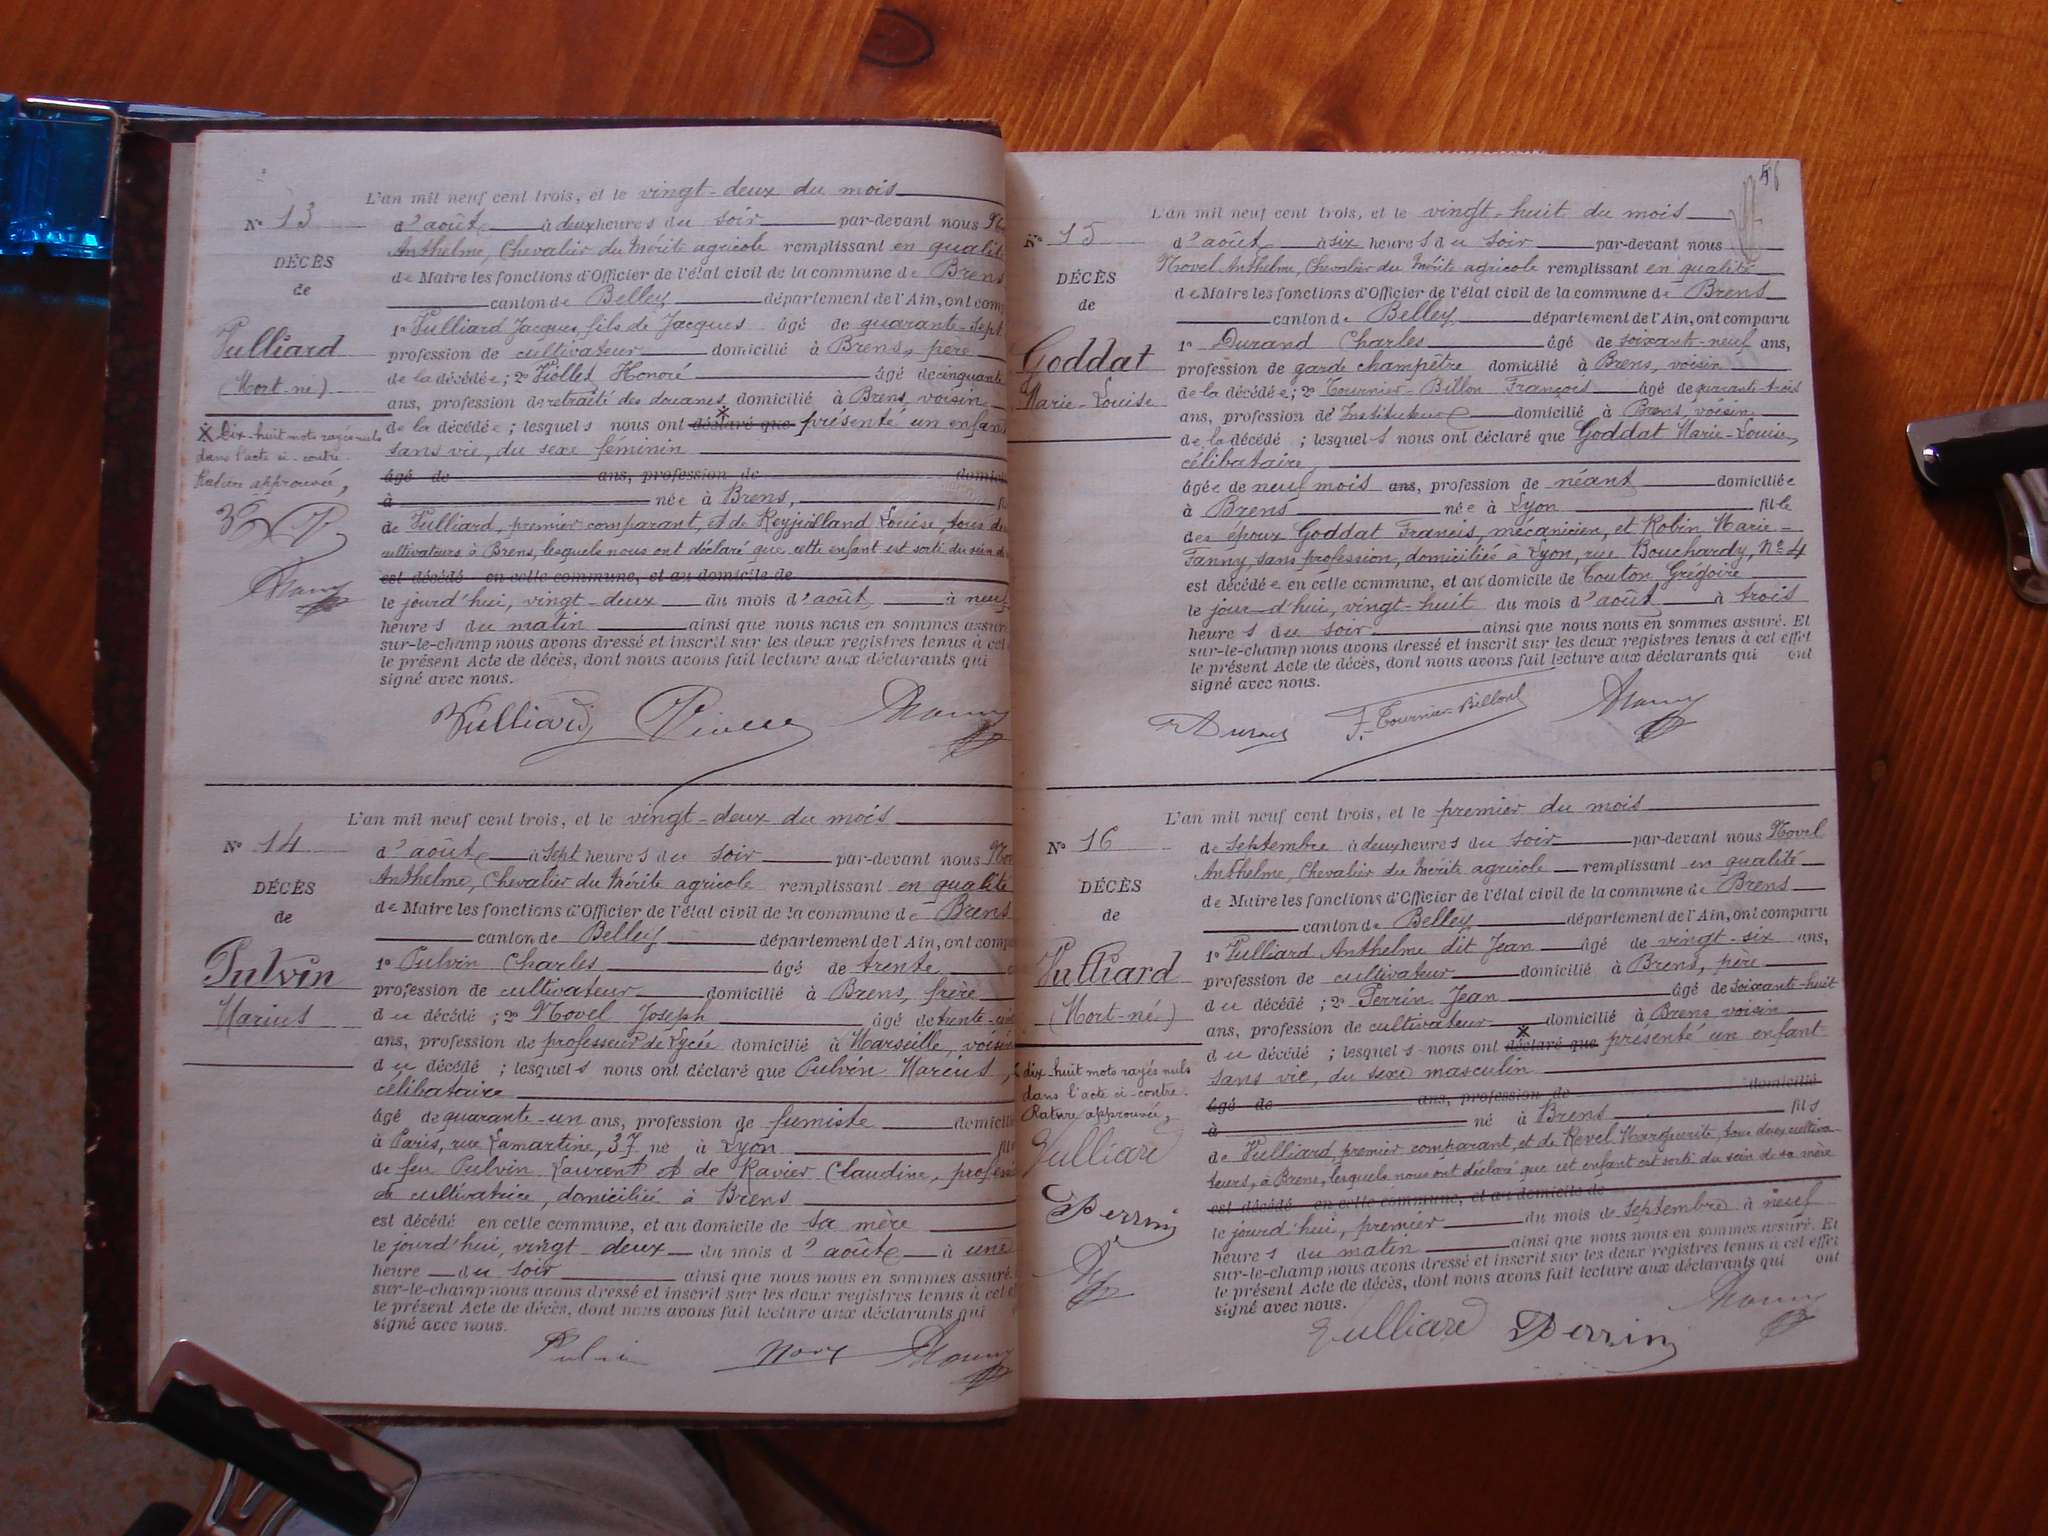 L'an mil neuf cent trois, et le vingt-deux du mois
N° 13
d'août à deux heures du soir par-devant nous
Anthelme, Chevalier du Mérite agricole remplissant en qualité
DÉCÈS
de Maire les fonctions d'Officier de l'état civil de la commune de Brens
de
canton de Belley département de l'Ain, ont
1° Vulliard Jacques, fils de Jacques âgé de quarante-sept
Vulliard
profession de cultivateur domicilié à Brens, père
(Mort-né)
de la décédée; 2° Violley Honoré âgé de cinquante
ans, profession de retraité des douanes domicilié à Brens, voisin
de la décédée; lesquels nous ont déclaré que présenté un enfant
sans vie, du sexe féminin
X Dix-huit mots rayés nuls
dans l'acte ci-contre.
Rature approuvée,
âgé de ans, profession de
à née à Brens,
de Vulliard, premier comparant, et de Louise, tous deux
cultivateurs à Brens, lesquels nous ont déclaré que cette enfant est sorti du sein de
est décédé en cette commune, et au domicile de
le jourd'hui, vingt-deux du mois d'août à neuf
heures du matin ainsi que nous nous en sommes assuré
sur-le-champ nous avons dressé et inscrit sur les deux registres tenus à cet
le présent Acte de décès, dont nous avons fait lecture aux déclarants qui
signé avec nous.
Vulliard
L'an mil neuf cent trois, et le vingt-deux du mois
N° 14
d'août à sept heures du soir par-devant nous
Anthelme, Chevalier du Mérite agricole remplissant en qualité
DÉCÈS
de Maire les fonctions d'Officier de l'état civil de la commune de Brens
de
canton de Belley département de l'Ain, ont
1° Pulvin Charles âgé de trente
Pulvin
profession de cultivateur domicilié à Brens, frère
Marius
du décédé; 2° Novel Joseph âgé de trente
ans, profession de professeur de Lycée domicilié à Marseille, voisin
du décédé; lesquels nous ont déclaré que Pulvin Marius,
célibataire
âgé de quarante-un ans, profession de fumiste
à Paris, rue Lamartine, 37 né à Lyon
de feu Pulvin Laurent et de Ravier Claudine,
de cultivatrice, domiciliée à Brens
est décédé en cette commune, et au domicile de sa mère
le jourd'hui, vingt-deux du mois d'août à une
heure du soir ainsi que nous nous en sommes assuré.
sur-le-champ nous avons dressé et inscrit sur les deux registres tenus à cet
le présent Acte de décès, dont nous avons fait lecture aux déclarants qui
signé avec nous.
Pulvin
58
L'an mil neuf cent trois, et le vingt-huit du mois
N° 15
d'août à six heures du soir par-devant nous
Novel Anthelme, Chevalier du Mérite agricole remplissant en qualité
DÉCÈS
de Maire les fonctions d'Officier de l'état civil de la commune de Brens
de
canton de Belley département de l'Ain, ont comparu
1° Durand Charles âgé de soixante-neuf ans,
Goddat
profession de garde champêtre domicilié à Brens, voisin
de la décédée; 2° Tournier-Billon François âgé de quarante-trois
Marie-Louise
ans, profession d'Instituteur domicilié à Brens, voisin
de la décédé; lesquels nous ont déclaré que Goddat Marie-Louise,
célibataire,
âgée de neuf mois ans, profession de néant domiciliée
à Brens née à Lyon fille
des époux Goddat Francis, mécanicien, et Robin Marie-
Fanny, sans profession, domiciliés à Lyon, rue Bouchardy, N° 4
est décédée en cette commune, et au domicile de Couton, Grégoire
le jour-d'hui, vingt-huit du mois d'août à trois
heures du soir ainsi que nous nous en sommes assuré. Et
sur-le-champ nous avons dressé et inscrit sur les deux registres tenus à cet effet
le présent Acte de décès, dont nous avons fait lecture aux déclarants qui ont
signé avec nous.
Durand F. Tournier-Billon
L'an mil neuf cent trois, et le premier du mois
N° 16
de septembre à deux heures du soir par-devant nous Novel
Anthelme, Chevalier du Mérite agricole remplissant en qualité
DÉCÈS
de Maire les fonctions d'Officier de l'état civil de la commune de Brens
de
canton de Belley département de l'Ain, ont comparu
1° Vulliard Anthelme dit Jean âgé de vingt-six ans,
Vulliard
profession de cultivateur domicilié à Brens, père
(Mort-né)
du décédé; 2° Perrin Jean âgé de soixante-huit
ans, profession de cultivateur domicilié à Brens voisin
du décédé; lesquels nous ont déclaré que présenté un enfant
sans vie, du sexe masculin
dix-huit mots rayés nuls
dans l'acte ci-contre.
Rature approuvée,
âgé de ans, profession de domicilié
à né à Brens fils
de Vulliard, premier comparant, et de Revel Marguerite, tous deux cultiva-
teurs, à Brens, lesquels nous ont déclaré que cet enfant est sorti du sein de sa mère
est décédé en cette commune, et au domicile de
le jourd'hui, premier du mois de septembre à neuf
heures du matin ainsi que nous nous en sommes assuré. Et
sur-le-champ nous avons dressé et inscrit sur les deux registres tenus à cet effet
le présent Acte de décès, dont nous avons fait lecture aux déclarants qui ont
signé avec nous.
Vulliard
Perrin
Vulliard Perrin